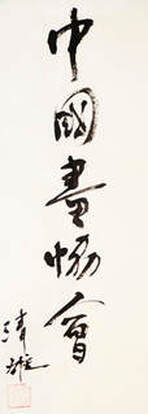 中國畫協會
清雄